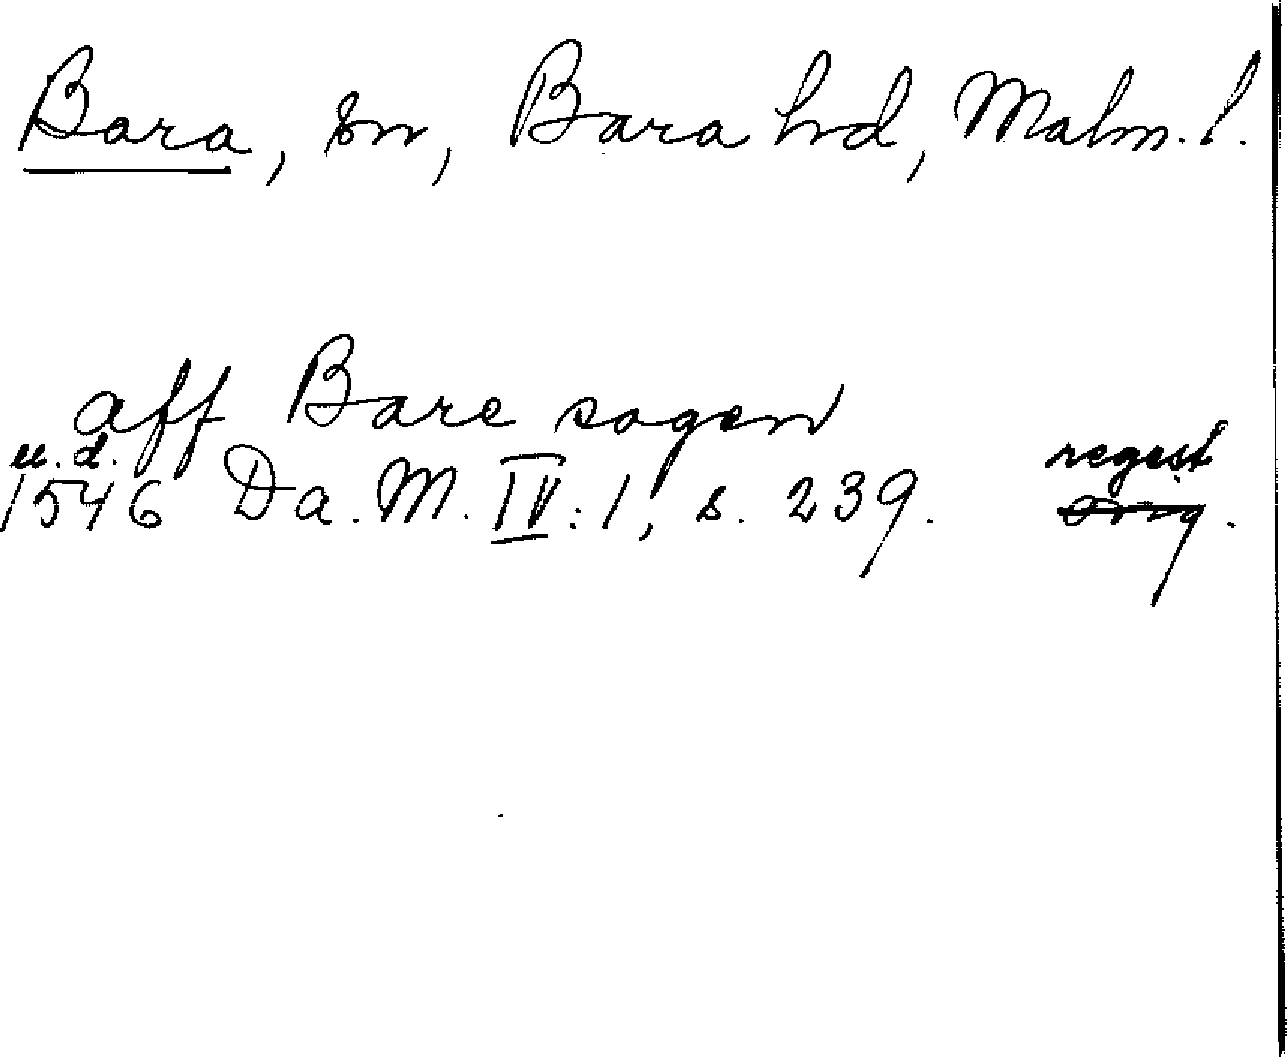 Bara, sn, Bara hrd, Malm. l.
aff Bare sogen
u. d. regest
1546 Da. M. IV: 1, s. 239. Orig.